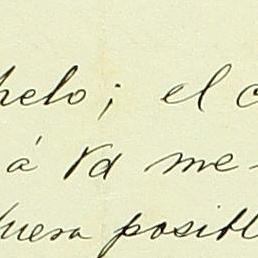 helo; el c
á Vd me-
uera posibl